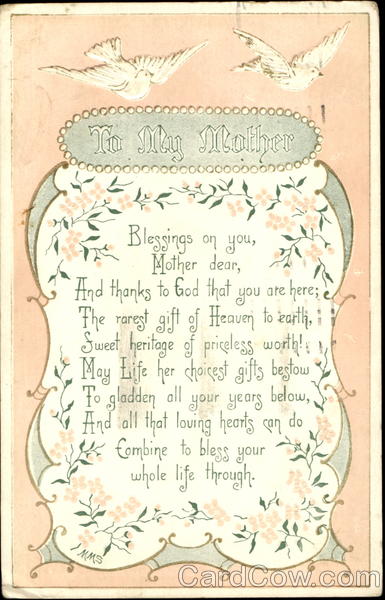 To My Mother
Blessings on you,
Mother dear,
And thanks to God that you are here;
The rarest gift of Heaven to earth,
Sweet heritage of priceless worth!
May Life her choicest gifts bestow
To gladden all your years below,
And all that loving hearts can do
Combine to bless your
whole life through.
CardCow.com